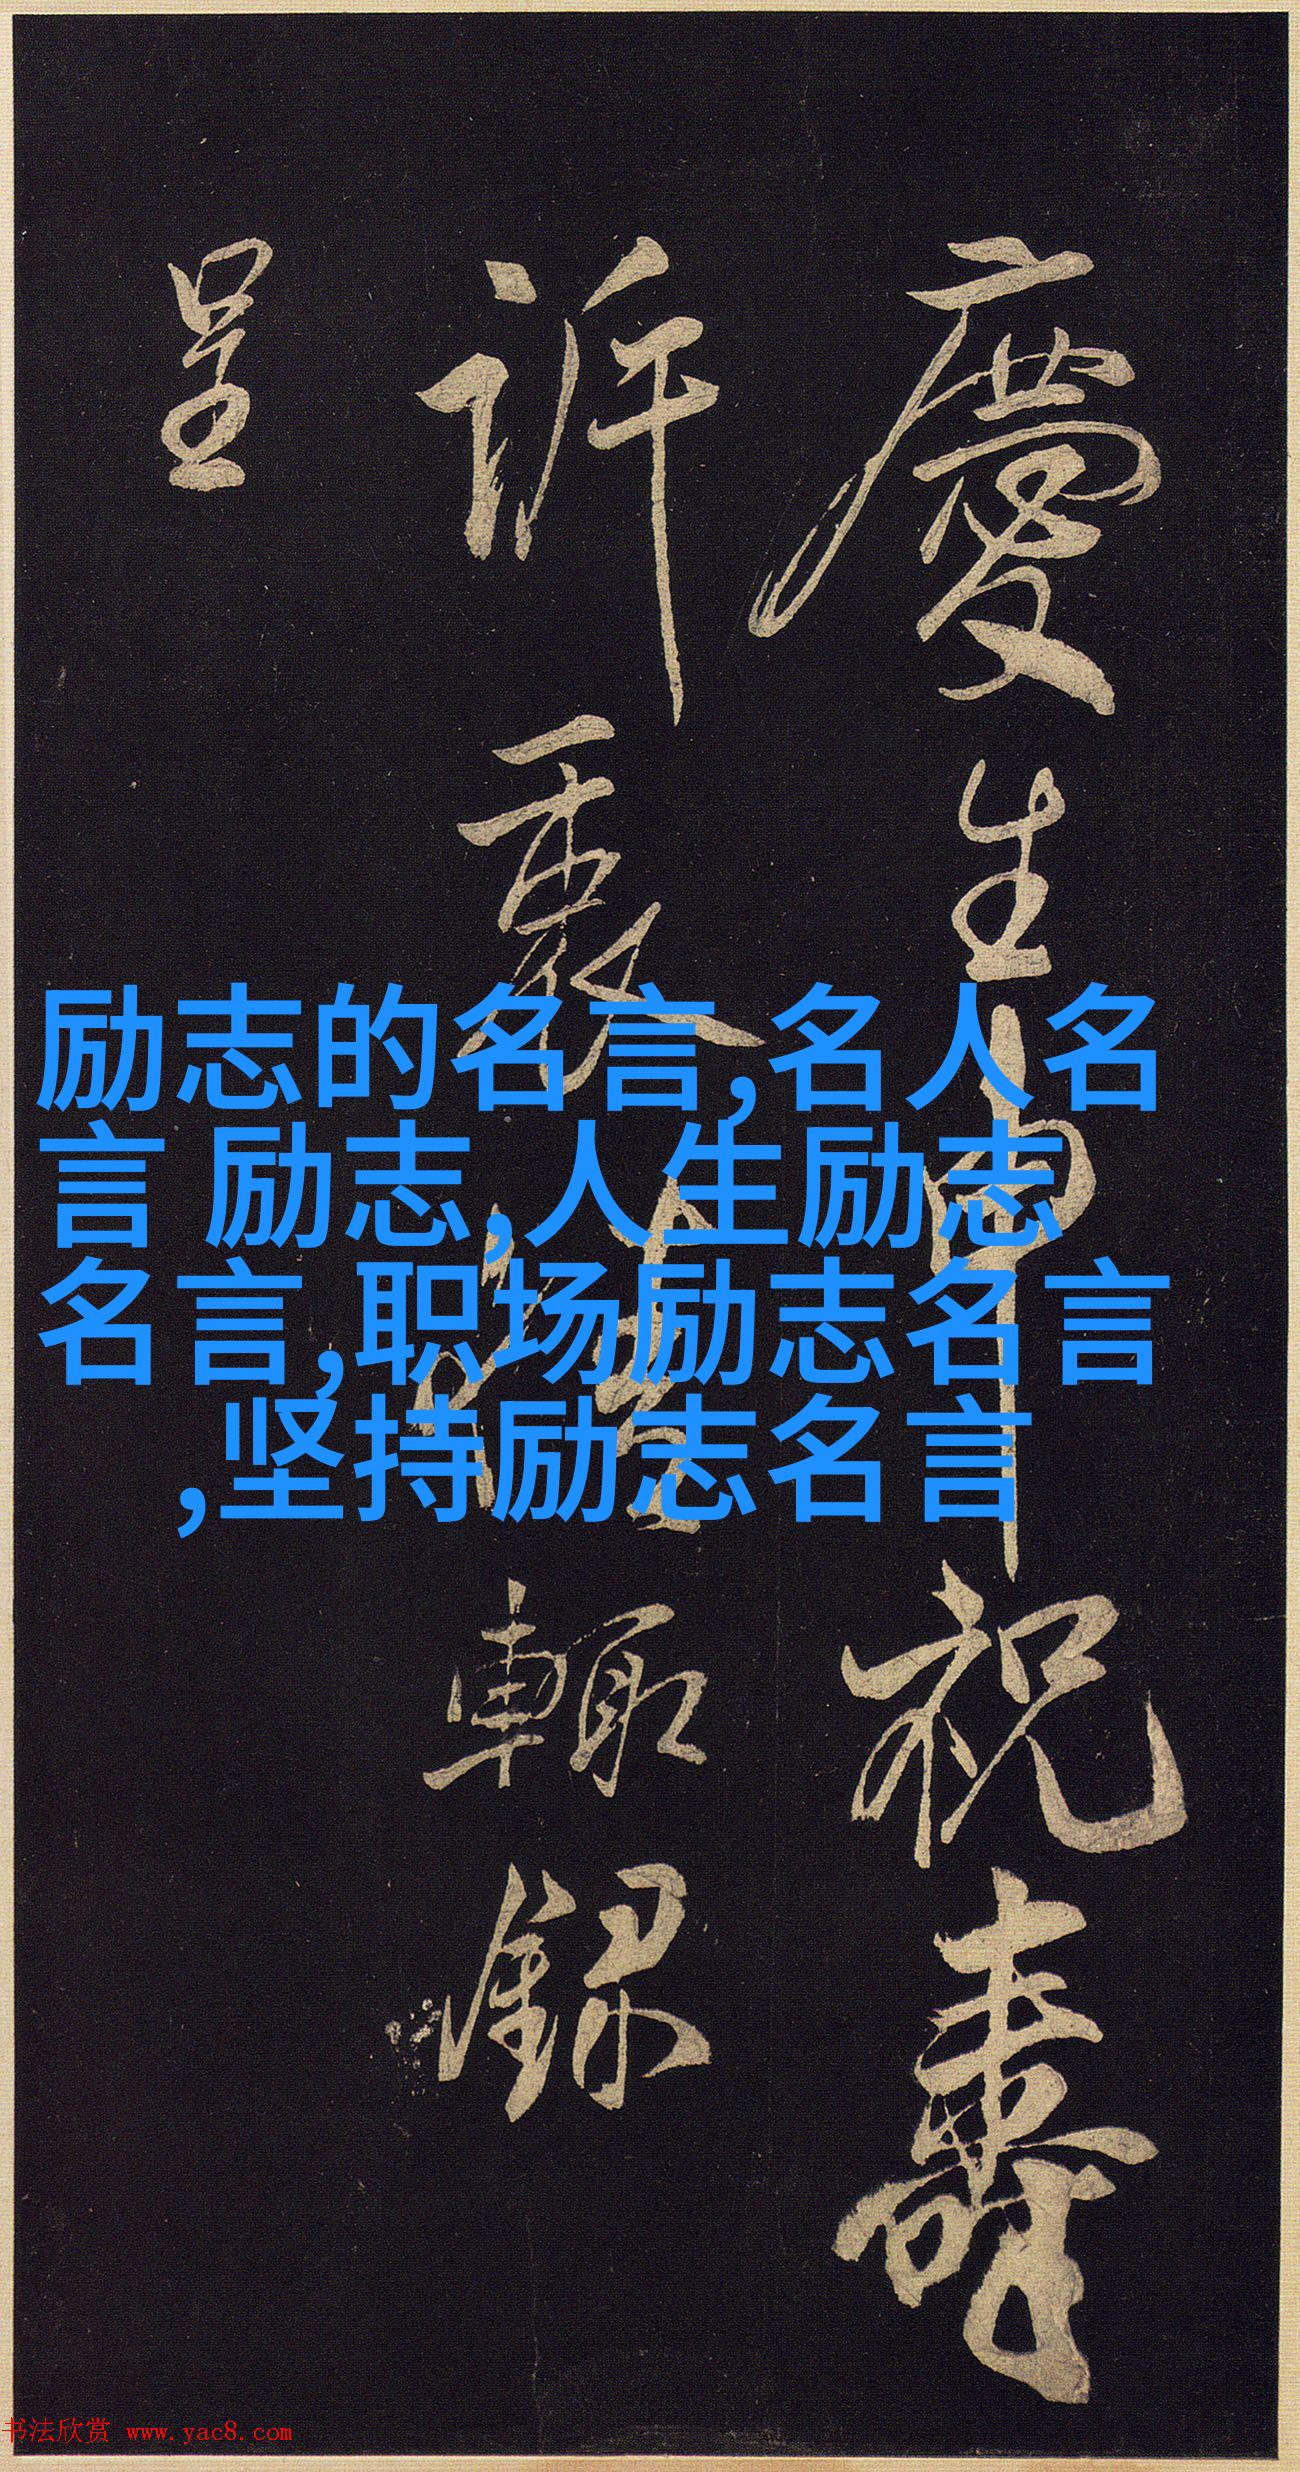 慶生申祝壽
訴衷情輒録
呈
励志的名言,名人名
言 励志,人生励志
名言,职场励志名言
,坚持励志名言
书法欣赏 www.yac8.com